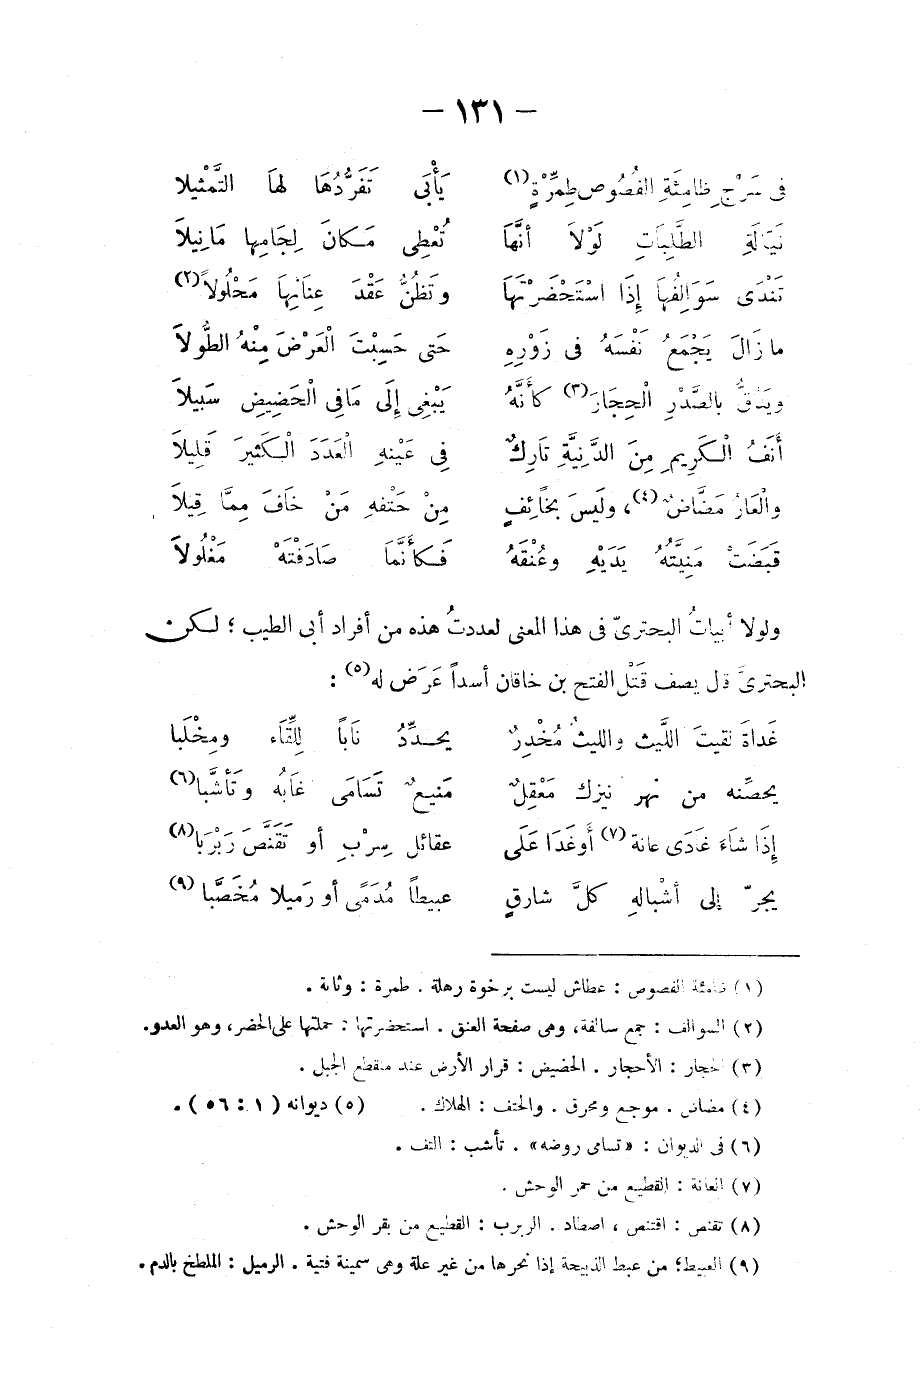 — ١٣١ —
فى سَرْجِ ظامِئَةِ الفُصُوصِ طِمِرَّةٍ(١) يَأْبَى تَفَرُّدُهَا لهَا التَّمْثيلا
نَيَّالَةِ الطَّلِبَاتِ لَوْلاَ أنَّهَا تُعْطِى مَكانَ لِجَامِها مَا نِيلاَ
تَنْدَى سَوَالِفُهَا إِذَا اسْتَحْضَرْتَهَا وتَظُنُّ عَقْدَ عِنَانِها مَحْلُولاً(٢)
ما زَالَ يَجْمَعُ نَفْسَهُ فى زَوْرِهِ حَتى حَسِبْتَ الْعَرْضَ مِنْهُ الطُّولاَ
ويَدُقُّ بالصَّدْرِ الْحِجَارَ(٣) كَأَنَّهُ يَبْغِى إِلَى مَا فِى الْحَضِيضِ سَبيلاَ
أَنَفُ الْكَرِيمِ مِنَ الدَّنِيَّةِ تَارِكٌ فِى عَيْنِهِ الْعَدَدَ الْكَثيرَ قَلِيلاَ
والْعَارُ مَضَّاضٌ(٤)، ولَيسَ بخَائِفٍ مِنْ حَتْفِهِ مَنْ خَافَ مِمَّا قِيلاَ
قَبَضَتْ مَنِيَّتُهُ يَدَيْهِ وعُنْقَهُ فَكأَنَّمَا صَادَفْتَهُ مَغْلُولاَ
ولولا أبياتُ البحترىّ فى هذا المعنى لعددتُ هذه من أفراد أبى الطيب ؛ لكن
البحترىَّ قال يصف قَتْل الفتح بن خاقان أسداً عَرَض له(٥) :
غَداةَ لقيتَ اللَّيث والليثُ مُخْدِرٌ يحدِّدُ نَاباً لِلِّقَاء ومِخْلَبا
يحصِّنه من نهر نيزك مَعْقِلٌ مَنيعٌ تَسَامَى غَابُه وتَأَشَّبا(٦)
إِذَا شاءَ غَادَى عانة(٧) أَوغَدَا عَلَى عقائل سِرْبِ أو تَقَنَّصَ رَبْرَبا(٨)
يجرّ إلى أشْبالهِ كلَّ شارقٍ عبيطاً مُدَمًى أو رَميلا مُخَضَّبا(٩)
(١) ظامئة الفصوص : عطاش ليست برخوة رهلة . طمرة : وثابة .
(٢) السوالف : جمع سالفة، وهى صفحة العنق . استحضرتها : حملتها على الحضر، وهو العدو.
(٣) الحجار : الأحجار . الحضيض : قرار الأرض عند منقطع الجبل .
(٤) مضاض . موجع ومحرق . والحتف : الهلاك . (٥) ديوانه (١ : ٥٦) .
(٦) فى الديوان : «تسامى روضه» . تأشب : التف .
(٧) العانة : القطيع من حمر الوحش .
(٨) تقنص : اقتنص ، اصطاد . الربرب : القطيع من بقر الوحش .
(٩) العبيط؛ من عبط الذبيحة إذا نحرها من غير علة وهى سمينة فتية . الرميل : الملطخ بالدم .